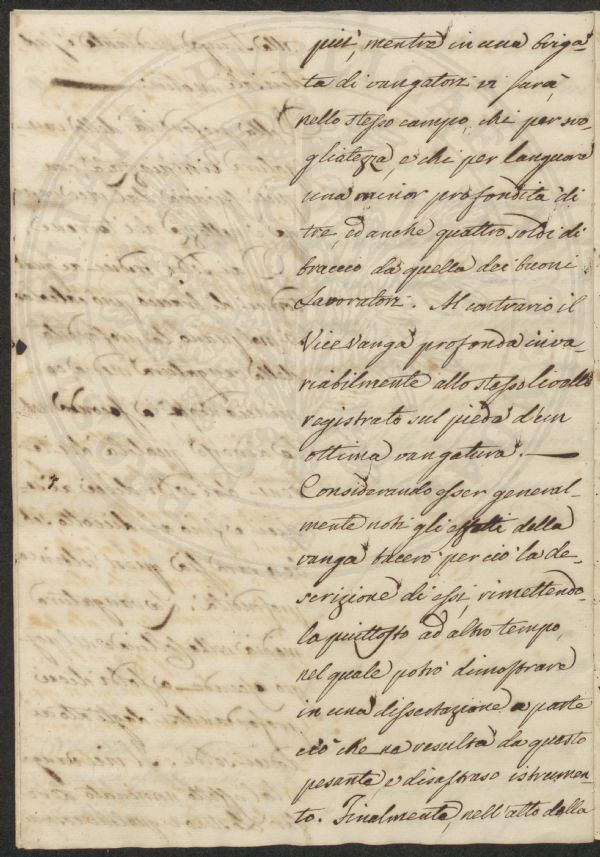 più, mentre in una briga-
ta di vangatori vi sarà,
nello stesso campo, chi per svo-
gliatezza, e chi per languore
una minor profondità di
tre, ed anche quattro soldi di
braccio da quella dei buoni
Lavoratori. Al contrario il
Vicevanga profonda inva-
riabilmente allo stesso livello
registrato sul piede d'un
ottima vangatura. —
Considerando esser general-
mente noti gli effetti della
vanga tacerò perciò la de-
scrizione di essi, rimettendo-
la piuttosto ad altro tempo,
nel quale potrò dimostrare
in una dissertazione a parte
ciò che ne resulta da questo
pesante, e disastroso istrumen-
to. Finalmente, nell'atto della